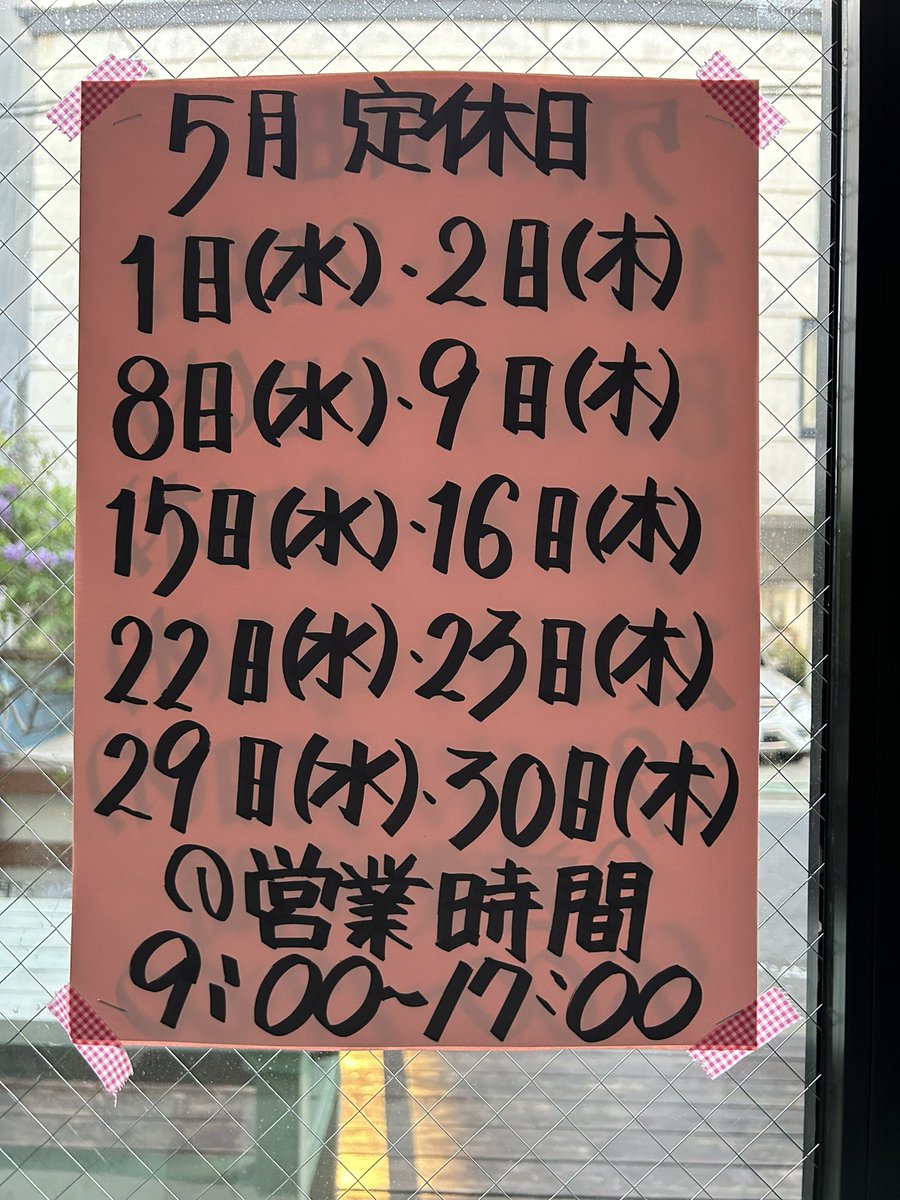 5月 定休日
1日(水)・2日(木)
8日(水)・9日(木)
15日(水)・16日(木)
22日(水)・23日(木)
29日(水)・30日(木)
営業時間
9:00~17:00